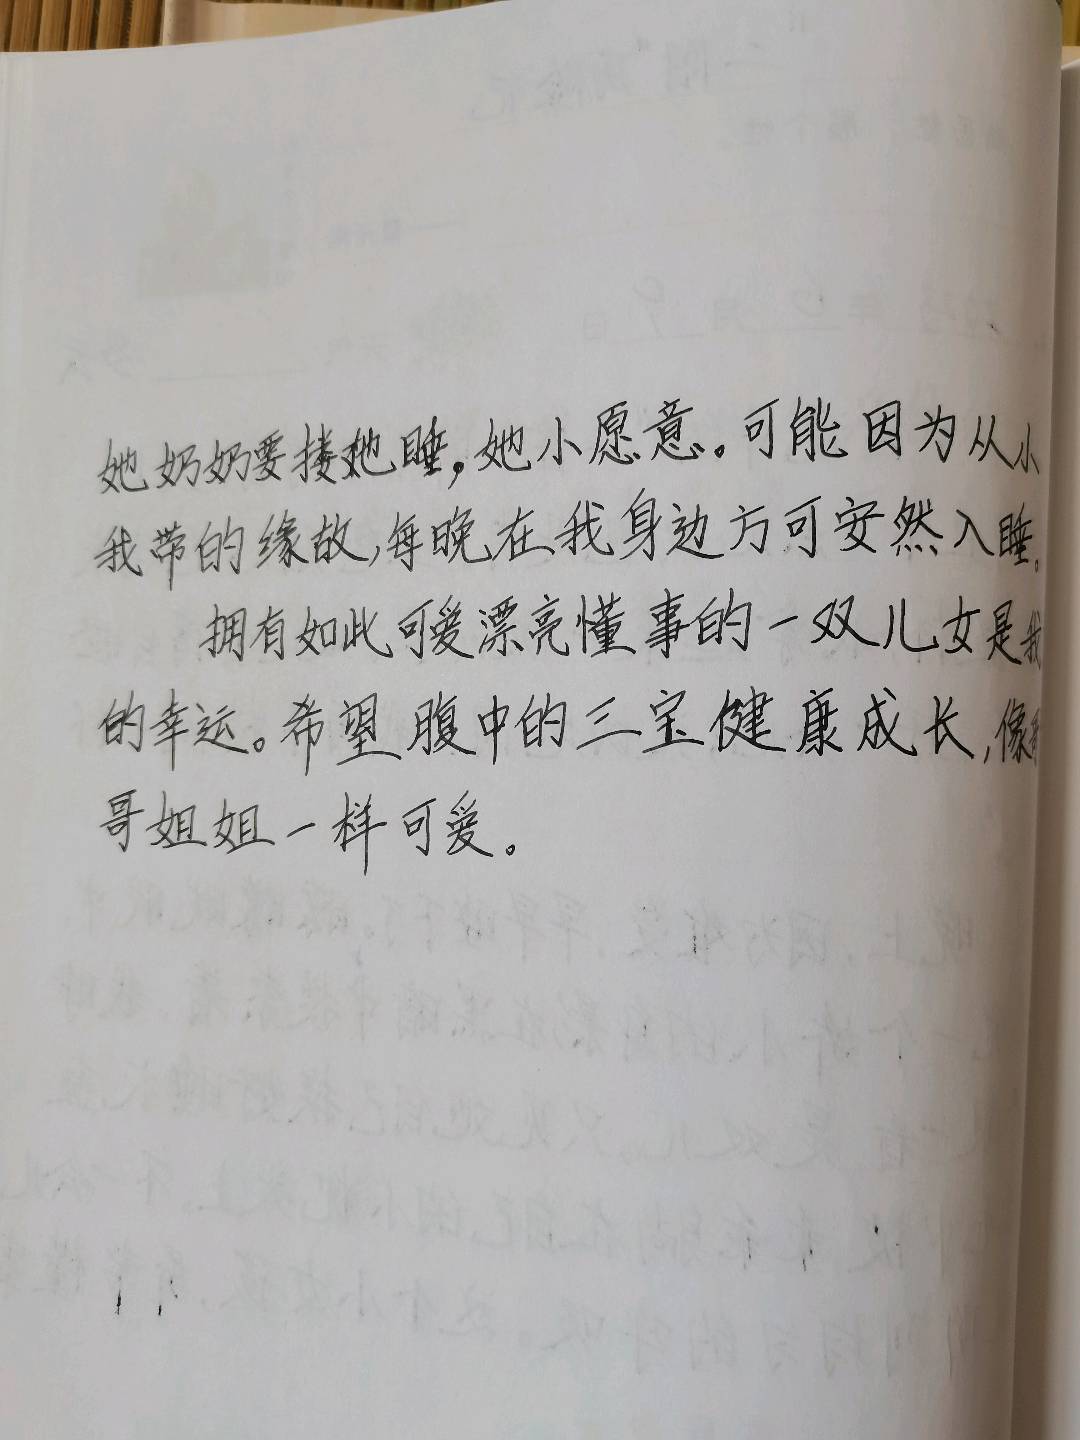 她奶奶要搂她睡，她小愿意。可能因为从小
我带的缘故，每晚在我身边方可安然入睡。
拥有如此可爱漂亮懂事的一双儿女是我
的幸运。希望腹中的三宝健康成长，像哥
哥姐姐一样可爱。